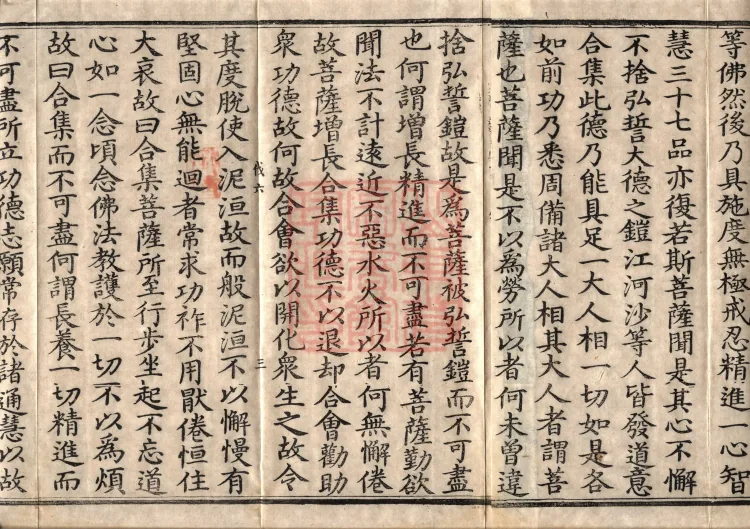 等佛然後乃具施度無極戒忍精進一心智
慧三十七品亦復若斯菩薩聞是其心不懈
不捨弘誓大德之鎧江河沙等人皆發道意
合集此德乃能具足一大人相一切如是各
如前功乃悉周備諸大人相其大人者謂菩
薩也菩薩聞是不以為勞所以者何未曾違
捨弘誓鎧故是為菩薩被弘誓鎧而不可盡
也何謂增長精進而不可盡若有菩薩勤欲
聞法不計遠近不惡水火所以者何無懈倦
故菩薩增長合集功德不以退却合會勸助
衆功德故何故合會欲以開化衆生之故令
伐六
三
其度脫使入泥洹故而般泥洹不以懈慢有
堅固心無能迴者常求功祚不用厭倦恒住
大哀故曰合集菩薩所至行步坐起不忘道
心如一念頃念佛法教護於一切不以為煩
故曰合集而不可盡何謂長養一切精進而
不可盡所立功德志願常存於諸通慧以故